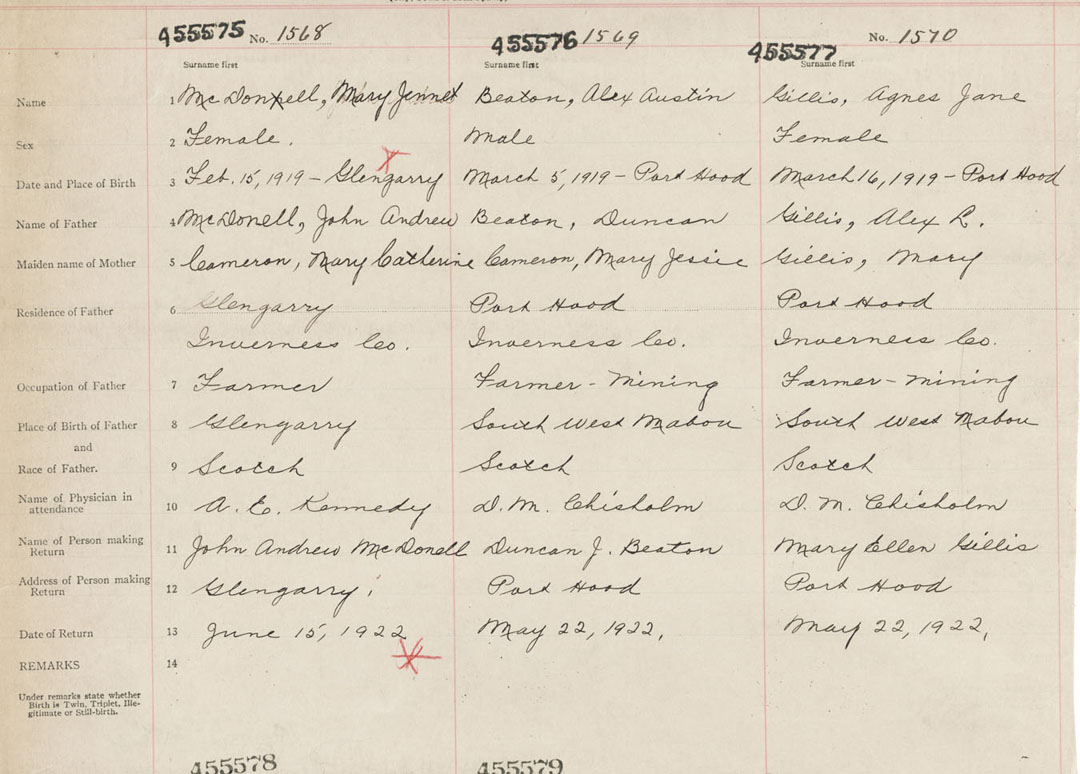 455575 No. 1568
455576 1569
455577 No. 1570
Surname first
Surname first
Surname first
Name 1 Mc Donnell, Mary Jennet Beaton, Alex Austin Gillis, Agnes Jane
Sex 2 Female. Male Female
Date and Place of Birth 3 Feb. 15, 1919 – Glengarry March 5, 1919 – Port Hood March 16, 1919 – Port Hood
Name of Father 4 McDonell, John Andrew Beaton, Duncan Gillis, Alex R.
Maiden name of Mother 5 Cameron, Mary Catherine Cameron, Mary Jessie Gillis, Mary
Residence of Father 6 Glengarry Port Hood Port Hood
Inverness Co. Inverness Co. Inverness Co.
Occupation of Father 7 Farmer Farmer - Mining Farmer - Mining
Place of Birth of Father 8 Glengarry South West Mabou South West Mabou
and
Race of Father. 9 Scotch Scotch Scotch
Name of Physician in
attendance 10 A. E. Kennedy D. M. Chisholm D. M. Chisholm
Name of Person making
Return 11 John Andrew McDonell Duncan J. Beaton Mary Ellen Gillis
Address of Person making
Return 12 Glengarry Port Hood Port Hood
Date of Return 13 June 15, 1922 May 22, 1922, May 22, 1922,
REMARKS 14
Under remarks state whether
Birth is Twin, Triplet, Ille-
gitimate or Still-birth.
455578 455579